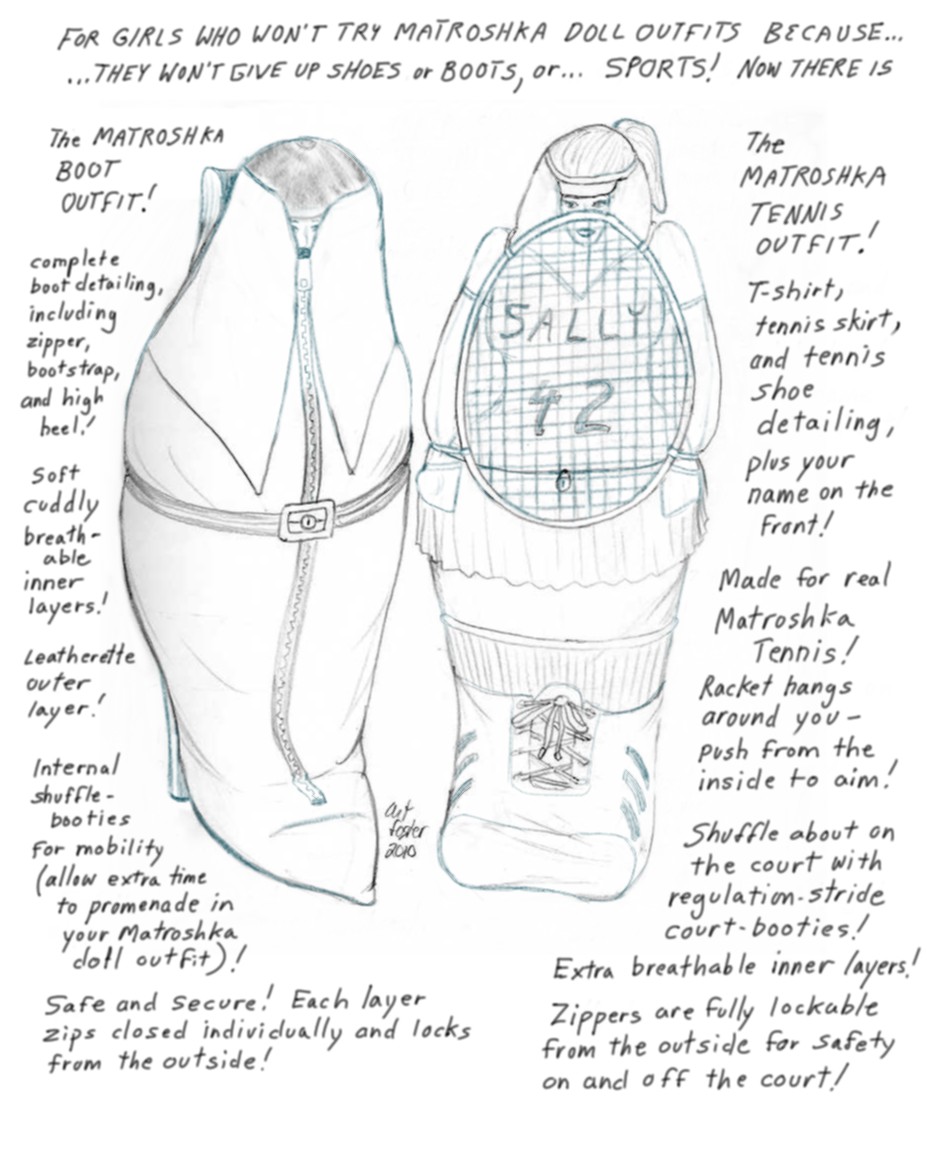 FOR GIRLS WHO WON'T TRY MATROSHKA DOLL OUTFITS BECAUSE...
...THEY WON'T GIVE UP SHOES or BOOTS, or... SPORTS! NOW THERE IS
The MATROSHKA
BOOT
OUTFIT!
complete
boot detailing,
including
zipper,
bootstrap,
and high
heel!
Soft
cuddly
breath-
able
inner
layers!
Leatherette
outer
layer!
Internal
shuffle-
booties
for mobility
(allow extra time
to promenade in
your Matroshka
doll outfit)!
Safe and secure! Each layer
zips closed individually and locks
from the outside!
SALLY
42
Art
Foster
2010
The
MATROSHKA
TENNIS
OUTFIT!
T-shirt,
tennis skirt,
and tennis
shoe
detailing,
plus your
name on the
front!
Made for real
Matroshka
Tennis!
Racket hangs
around you –
push from the
inside to aim!
Shuffle about on
the court with
regulation-stride
court-booties!
Extra breathable inner layers!
Zippers are fully lockable
from the outside for safety
on and off the court!